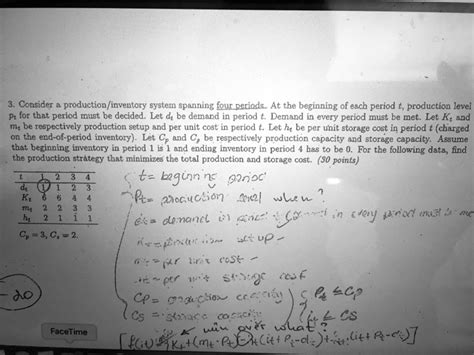 3. Consider a production/inventory system spanning four periods. At the beginning of each period t, production level
p_t for that period must be decided. Let d_t be demand in period t. Demand in every period must be met. Let K_t and
m_t be respectively production setup and per unit cost in period t. Let h_t be per unit storage cost in period t (charged
on the end-of-period inventory). Let C_p and C_s be respectively production capacity and storage capacity. Assume
that beginning inventory in period 1 is 1 and ending inventory in period 4 has to be 0. For the following data, find
the production strategy that minimizes the total production and storage cost. (30 points)
t 1 2 3 4
d_t 1 1 2 3
K_t 6 6 4 4
m_t 2 2 3 3
h_t 2 1 1 1
C_p = 3, C_s = 2.
t = beginning period
Pt = production level when?
= demand in every period must be me
set up
= per unit cost
= per unit storage cost
Cp = production capacity
Cs = storage capacity
Pt ≤ Cp
≤ Cs
-20
min over what?
FaceTime